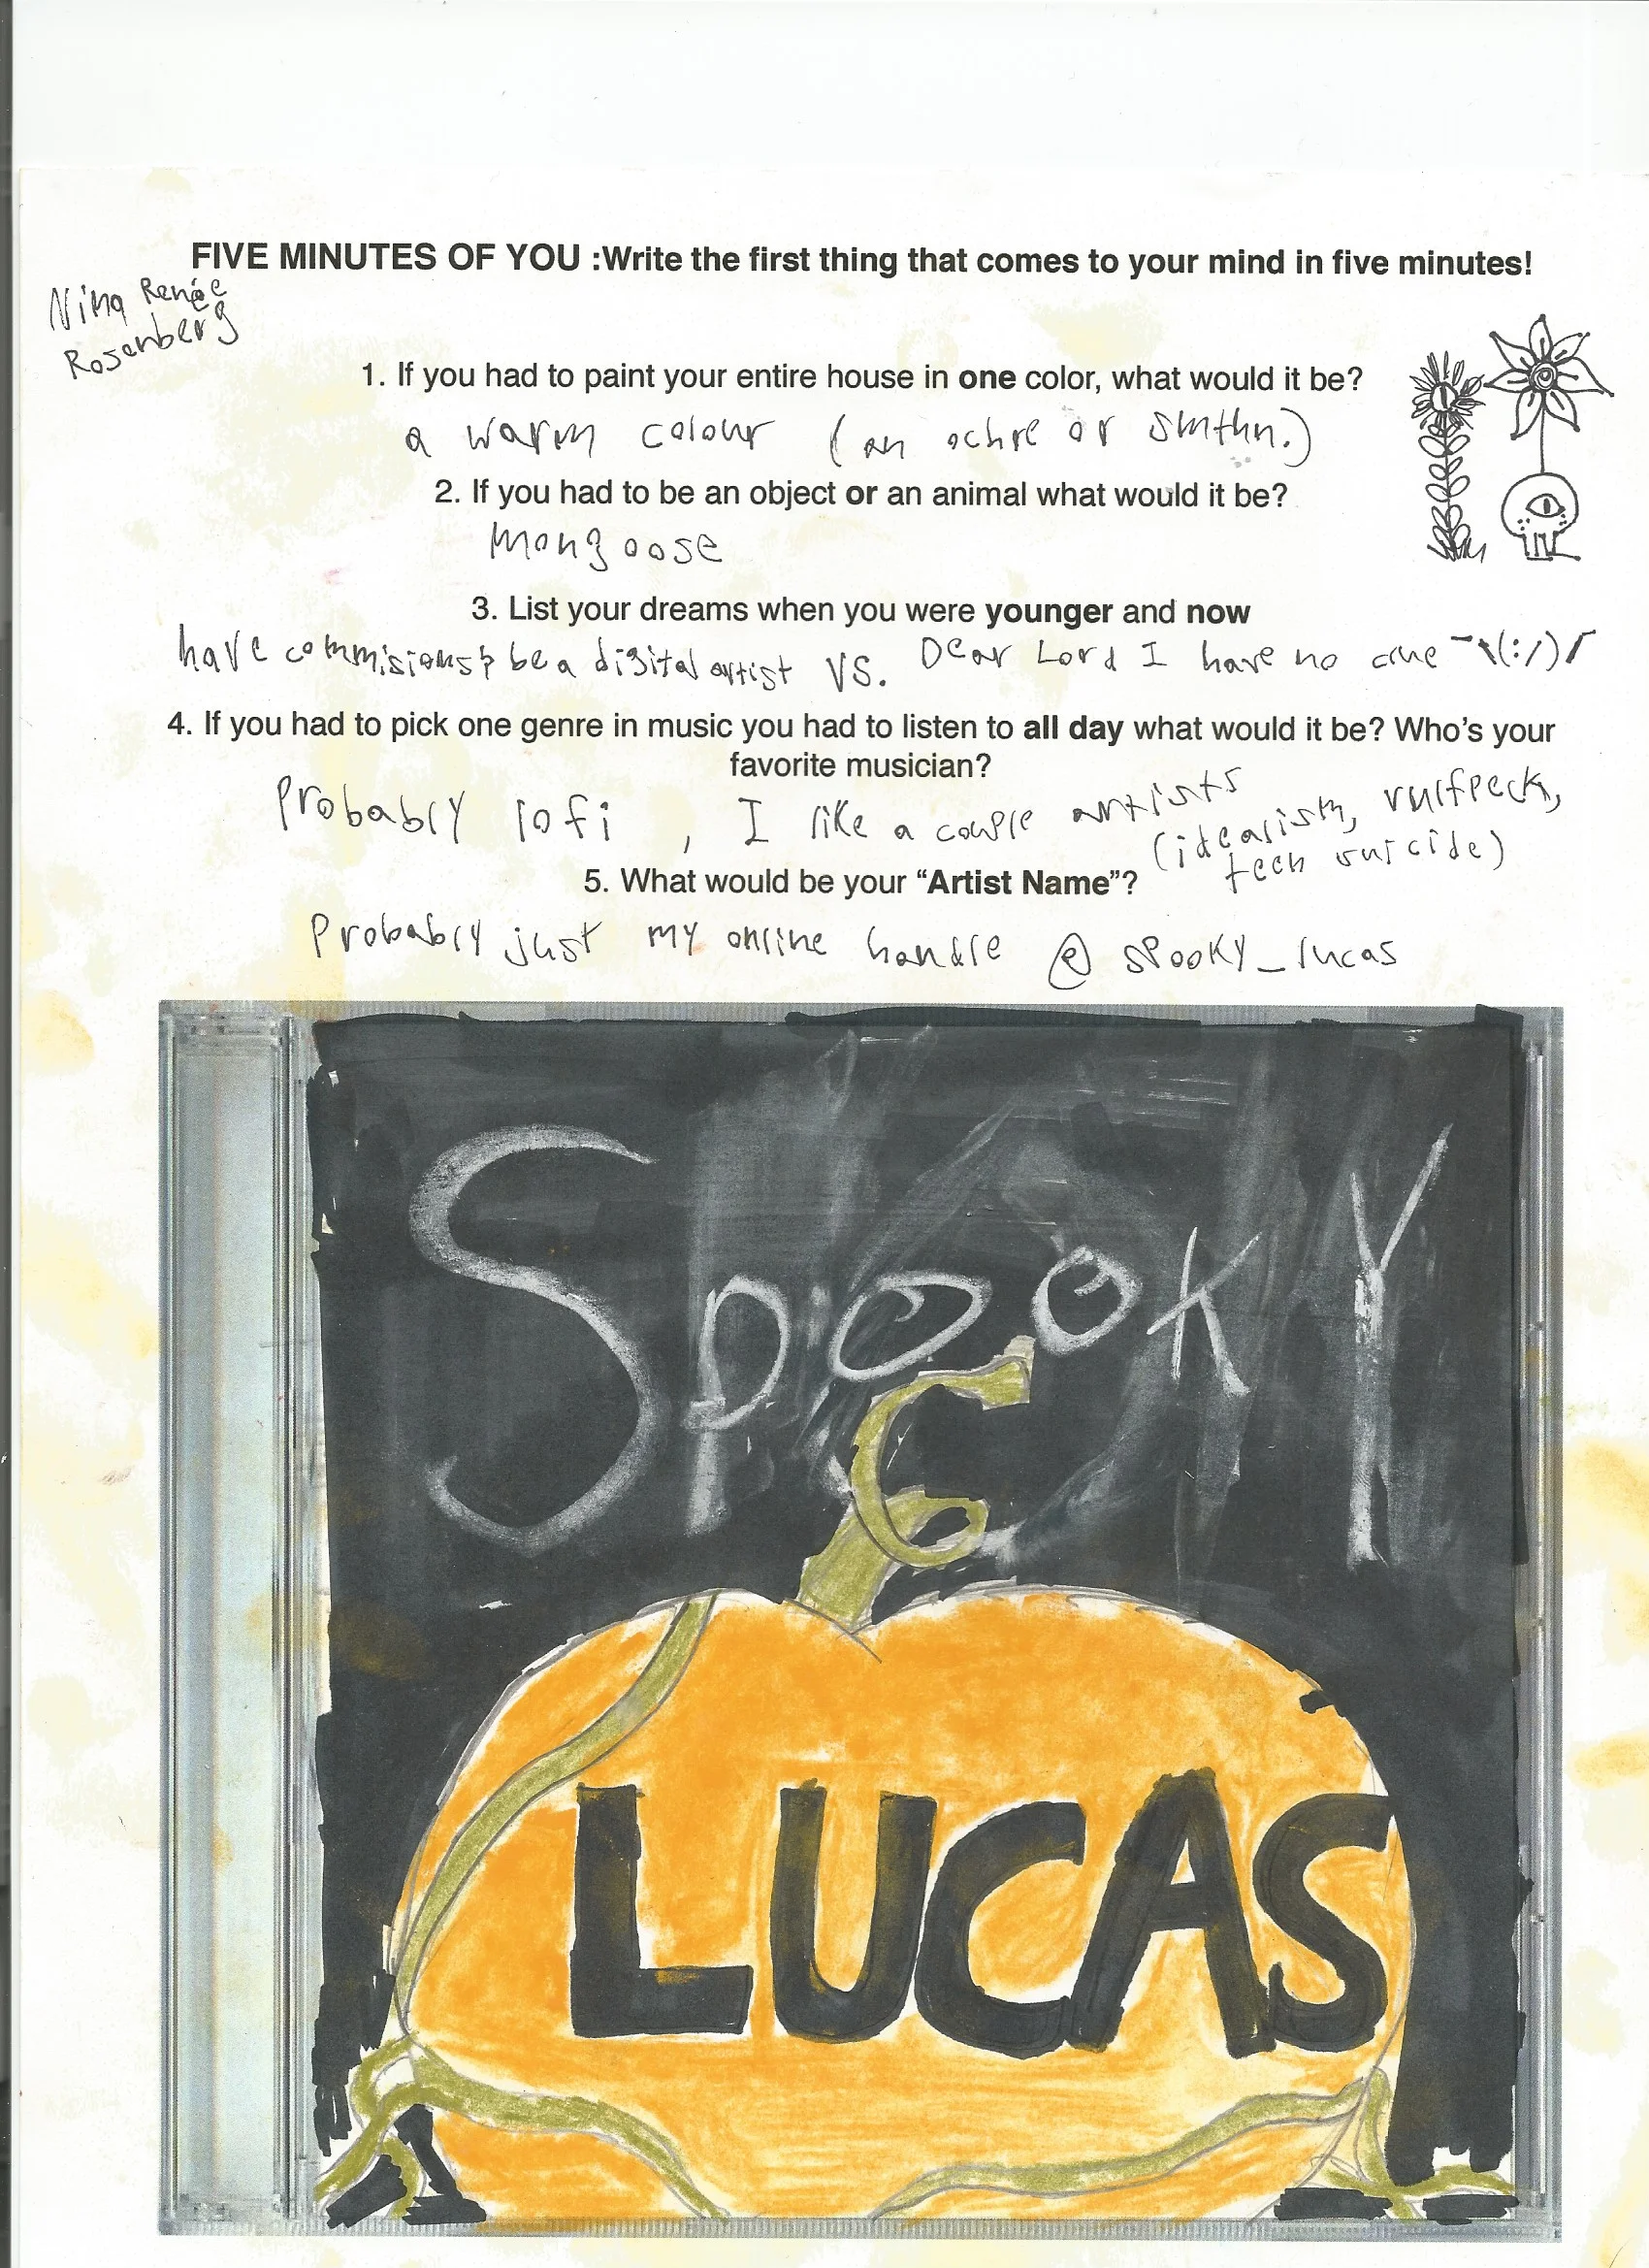 FIVE MINUTES OF YOU :Write the first thing that comes to your mind in five minutes!
Nina Renée
Rosenberg
1. If you had to paint your entire house in one color, what would it be?
a warm colour (an ochre or smthn.)
2. If you had to be an object or an animal what would it be?
mongoose
3. List your dreams when you were younger and now
have commisions & be a digital artist vs. Dear Lord I have no clue ¯\(:/)/¯
4. If you had to pick one genre in music you had to listen to all day what would it be? Who's your
favorite musician?
Probably lofi, I like a couple artists
(idealism, vulfpeck,
tech suicide)
5. What would be your "Artist Name"?
Probably just my online handle @ spooky_lucas
SpooKY
LUCAS